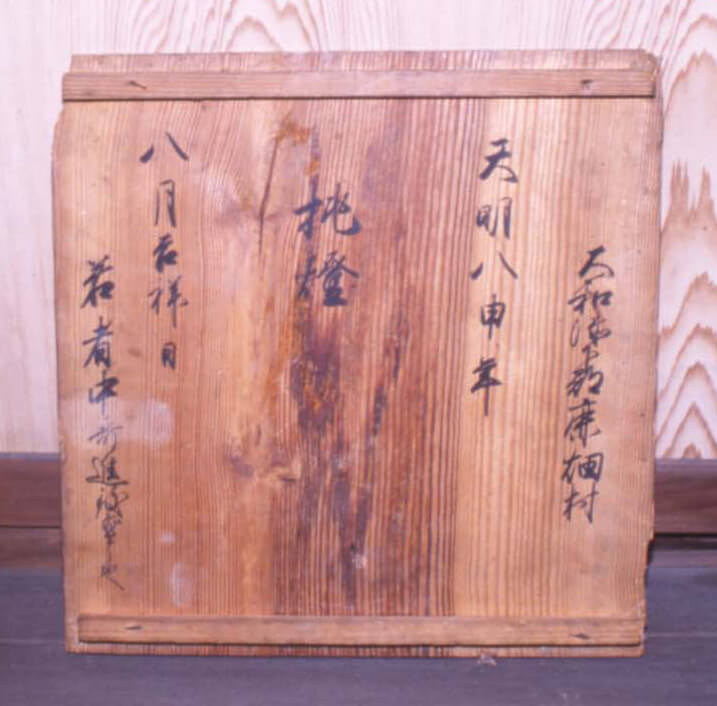 大和添下郡鹿畑村
天明八申年
挑燈
八月吉祥日
若者中